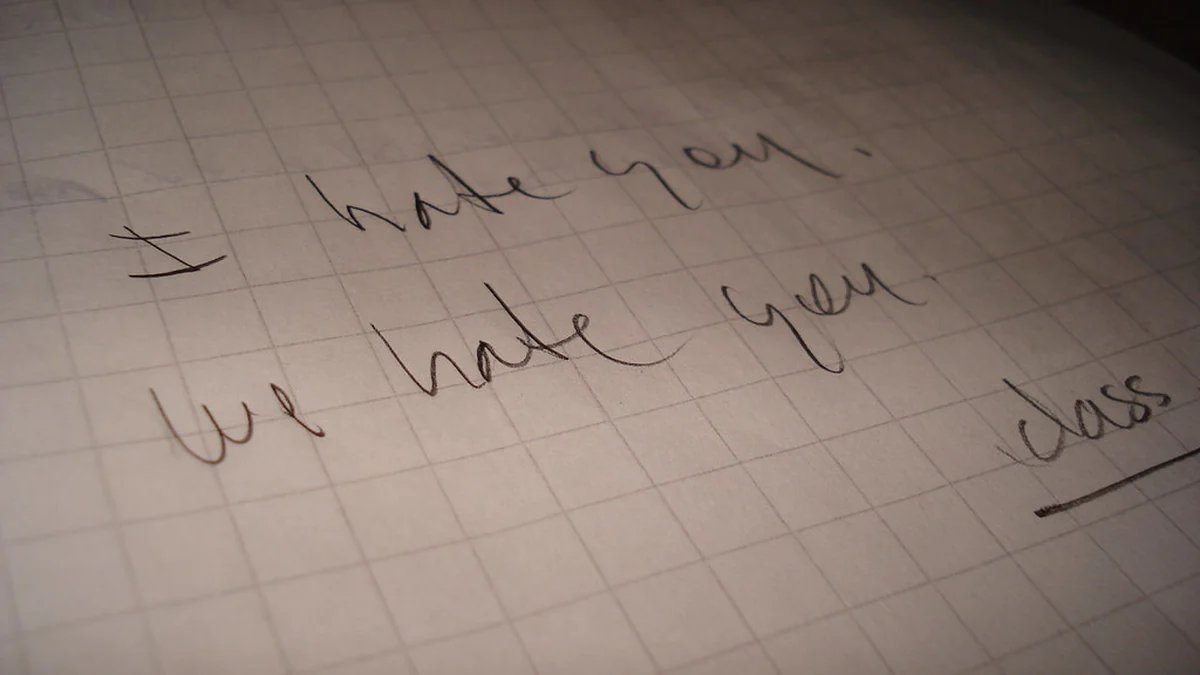 I hate you.
We hate you.
class